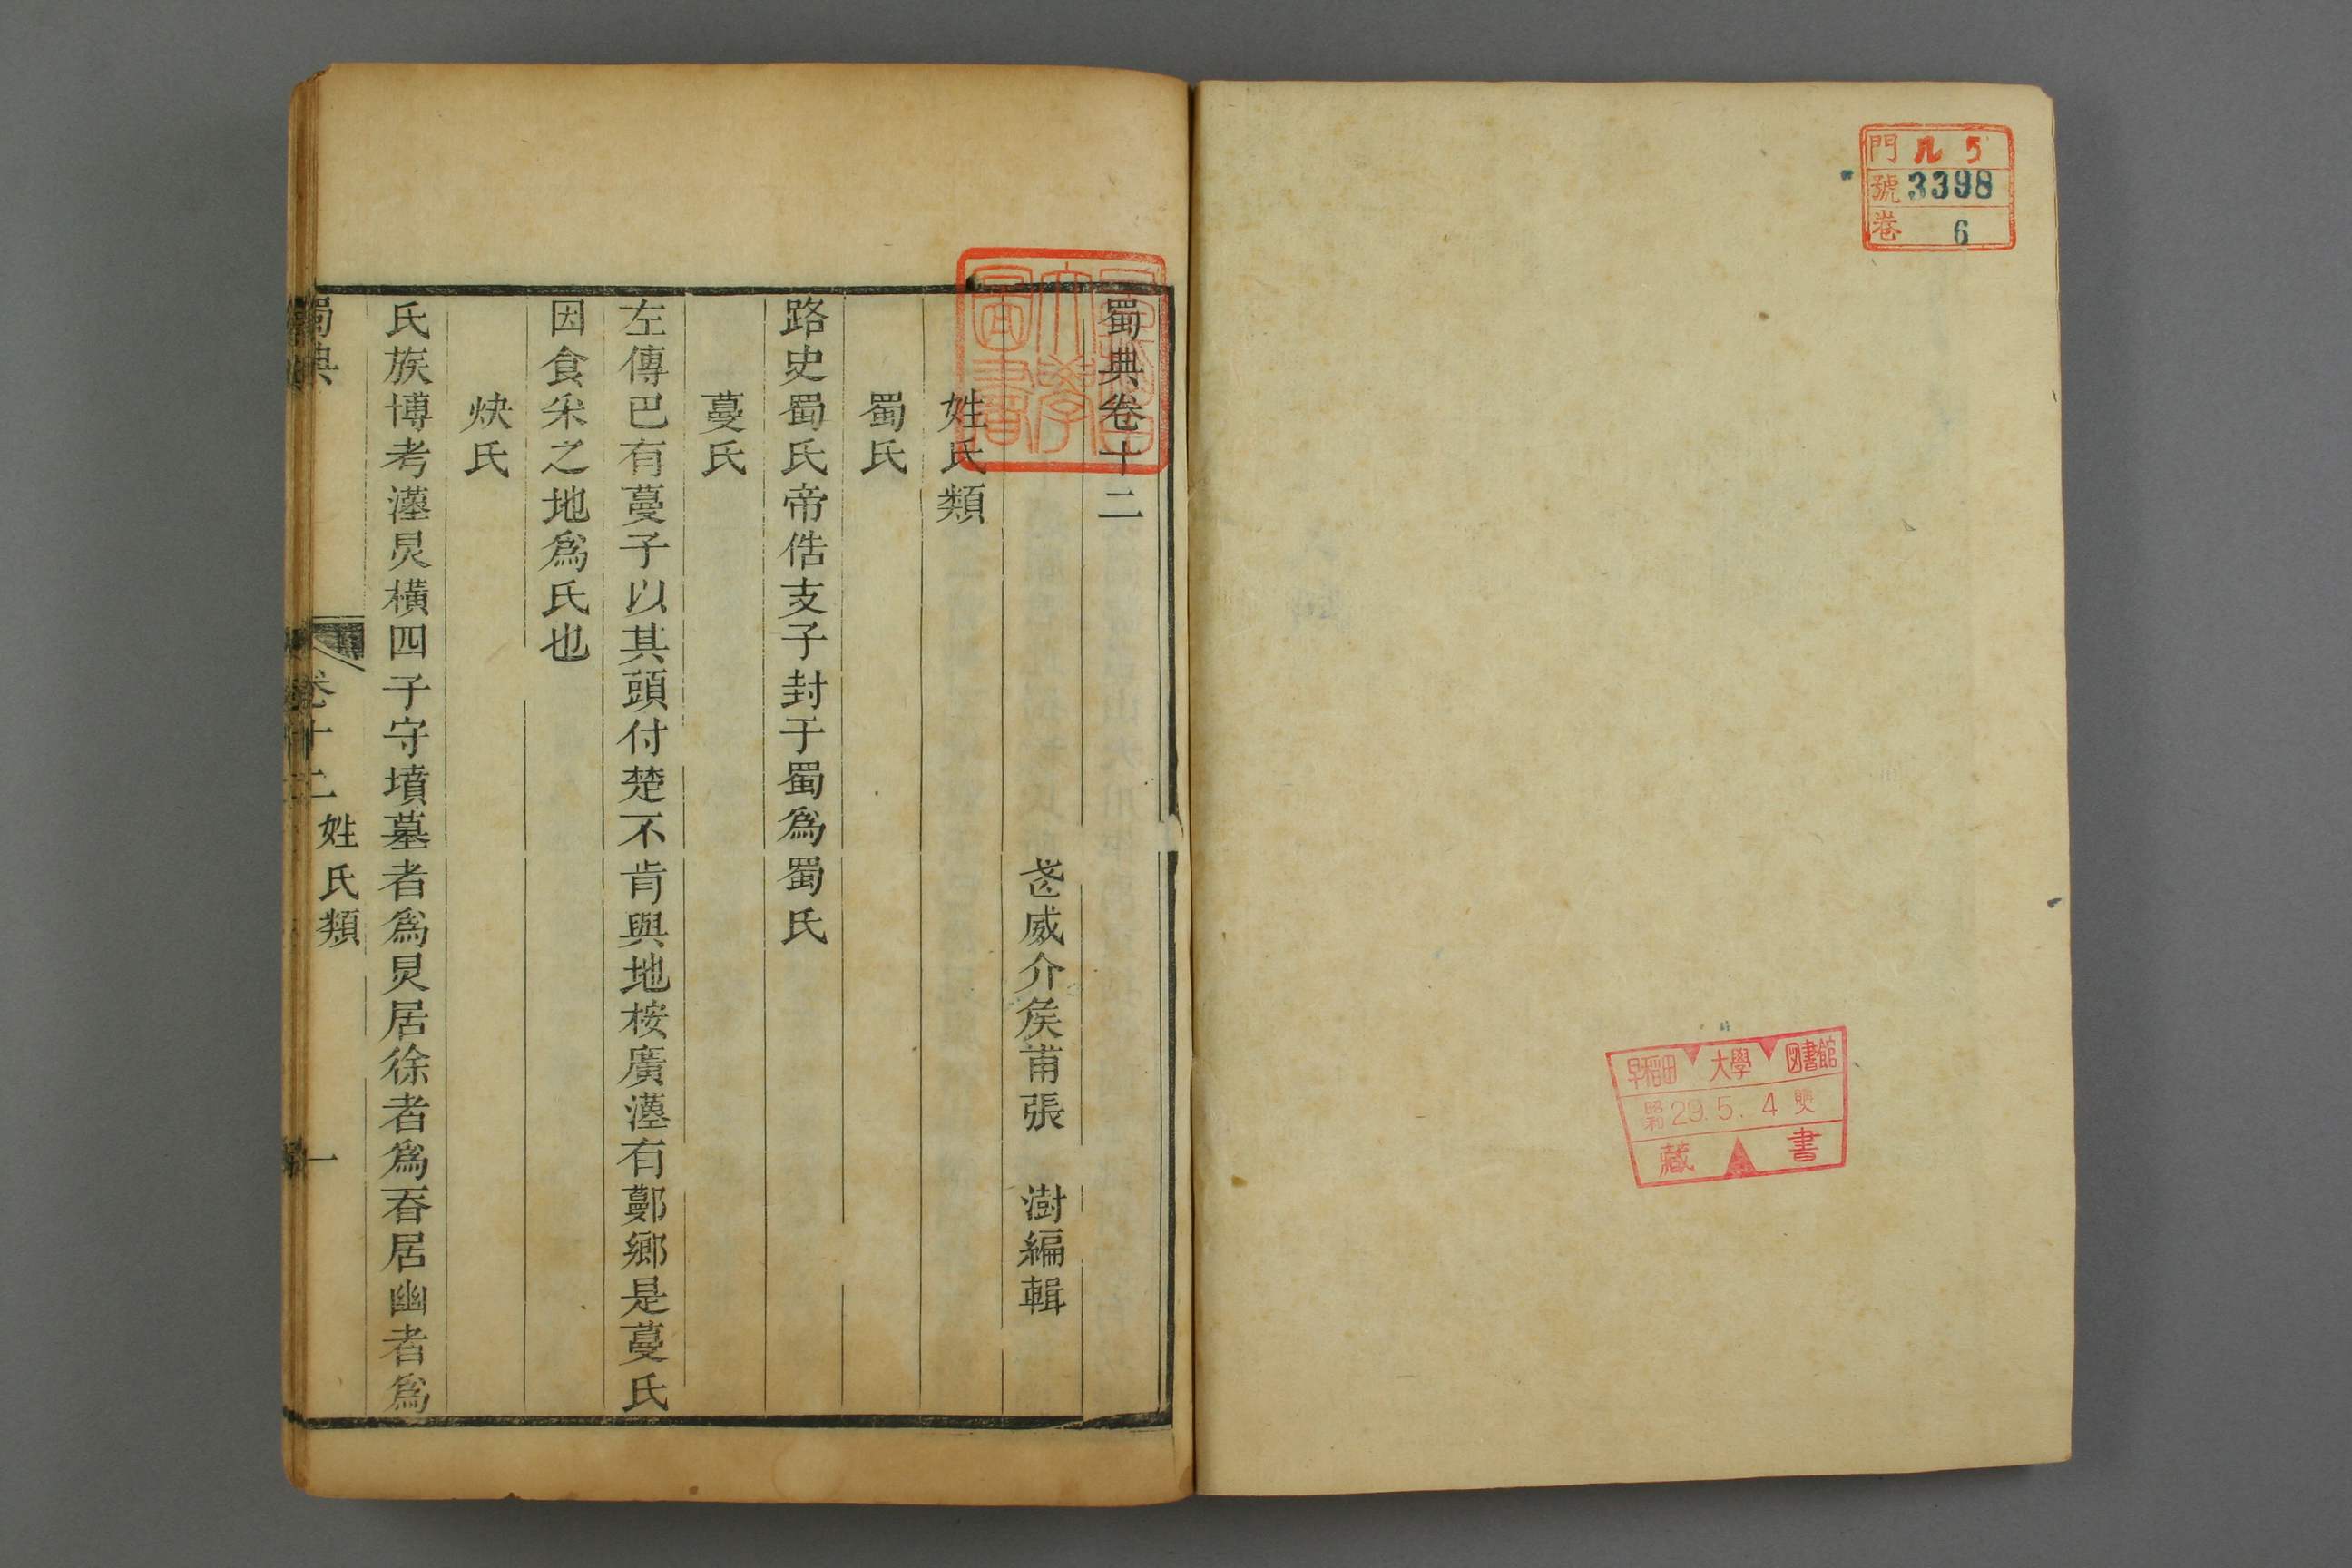 門 ル 5
號 3398
卷 6
早稲田 大學 図書館
昭和 29.5.4
藏 書
早稲田
大學
圖書
蜀典卷十二
武威介矦甫張 澍編輯
姓氏類
蜀氏
路史蜀氏帝俈支子封于蜀爲蜀氏
蔓氏
左傳巴有蔓子以其頭付楚不肯與地桉廣漢有鄤鄉是蔓氏
因食采之地爲氏也
炔氏
氏族博考漢炅橫四子守墳墓者爲炅居徐者爲吞居幽者爲
蜀典 卷十二 姓氏類 一